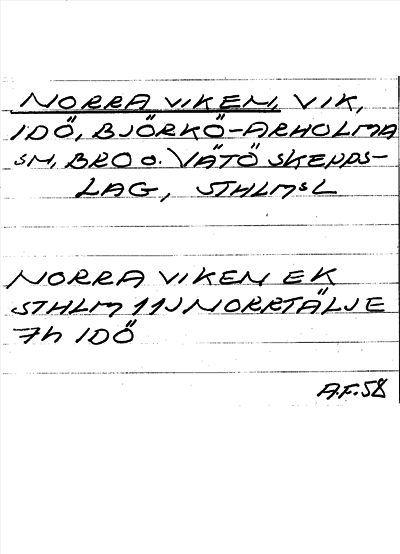 NORRA VIKEN, VIK,
IDÖ, BJÖRKÖ-ARHOLMA
SN, BRO O. VÄTÖ SKEPPS-
LAG, STHLMSL
NORRA VIKEN EK
STHLM 11J NORRTÄLJE
7h IDÖ
A.F. 58